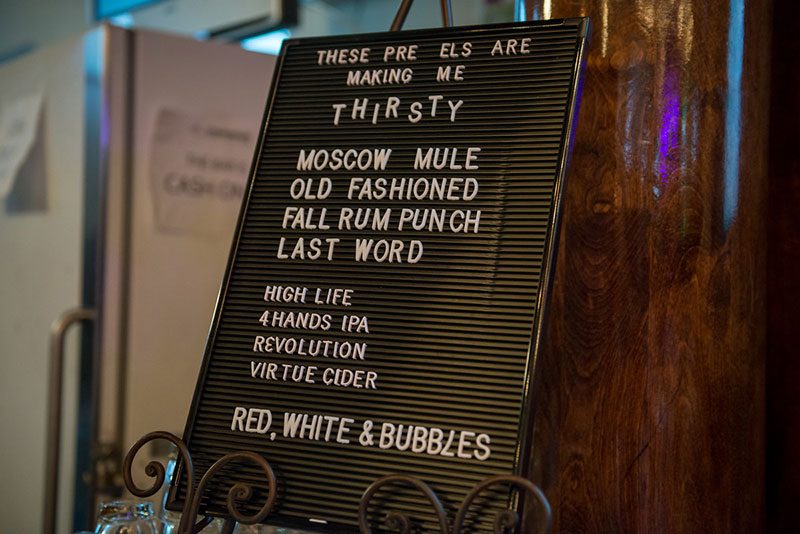 THESE PRE ELS ARE
MAKING ME
THIRSTY
MOSCOW MULE
OLD FASHIONED
FALL RUM PUNCH
LAST WORD
HIGH LIFE
4 HANDS IPA
REVOLUTION
VIRTUE CIDER
RED, WHITE & BUBBLES
CASH ON